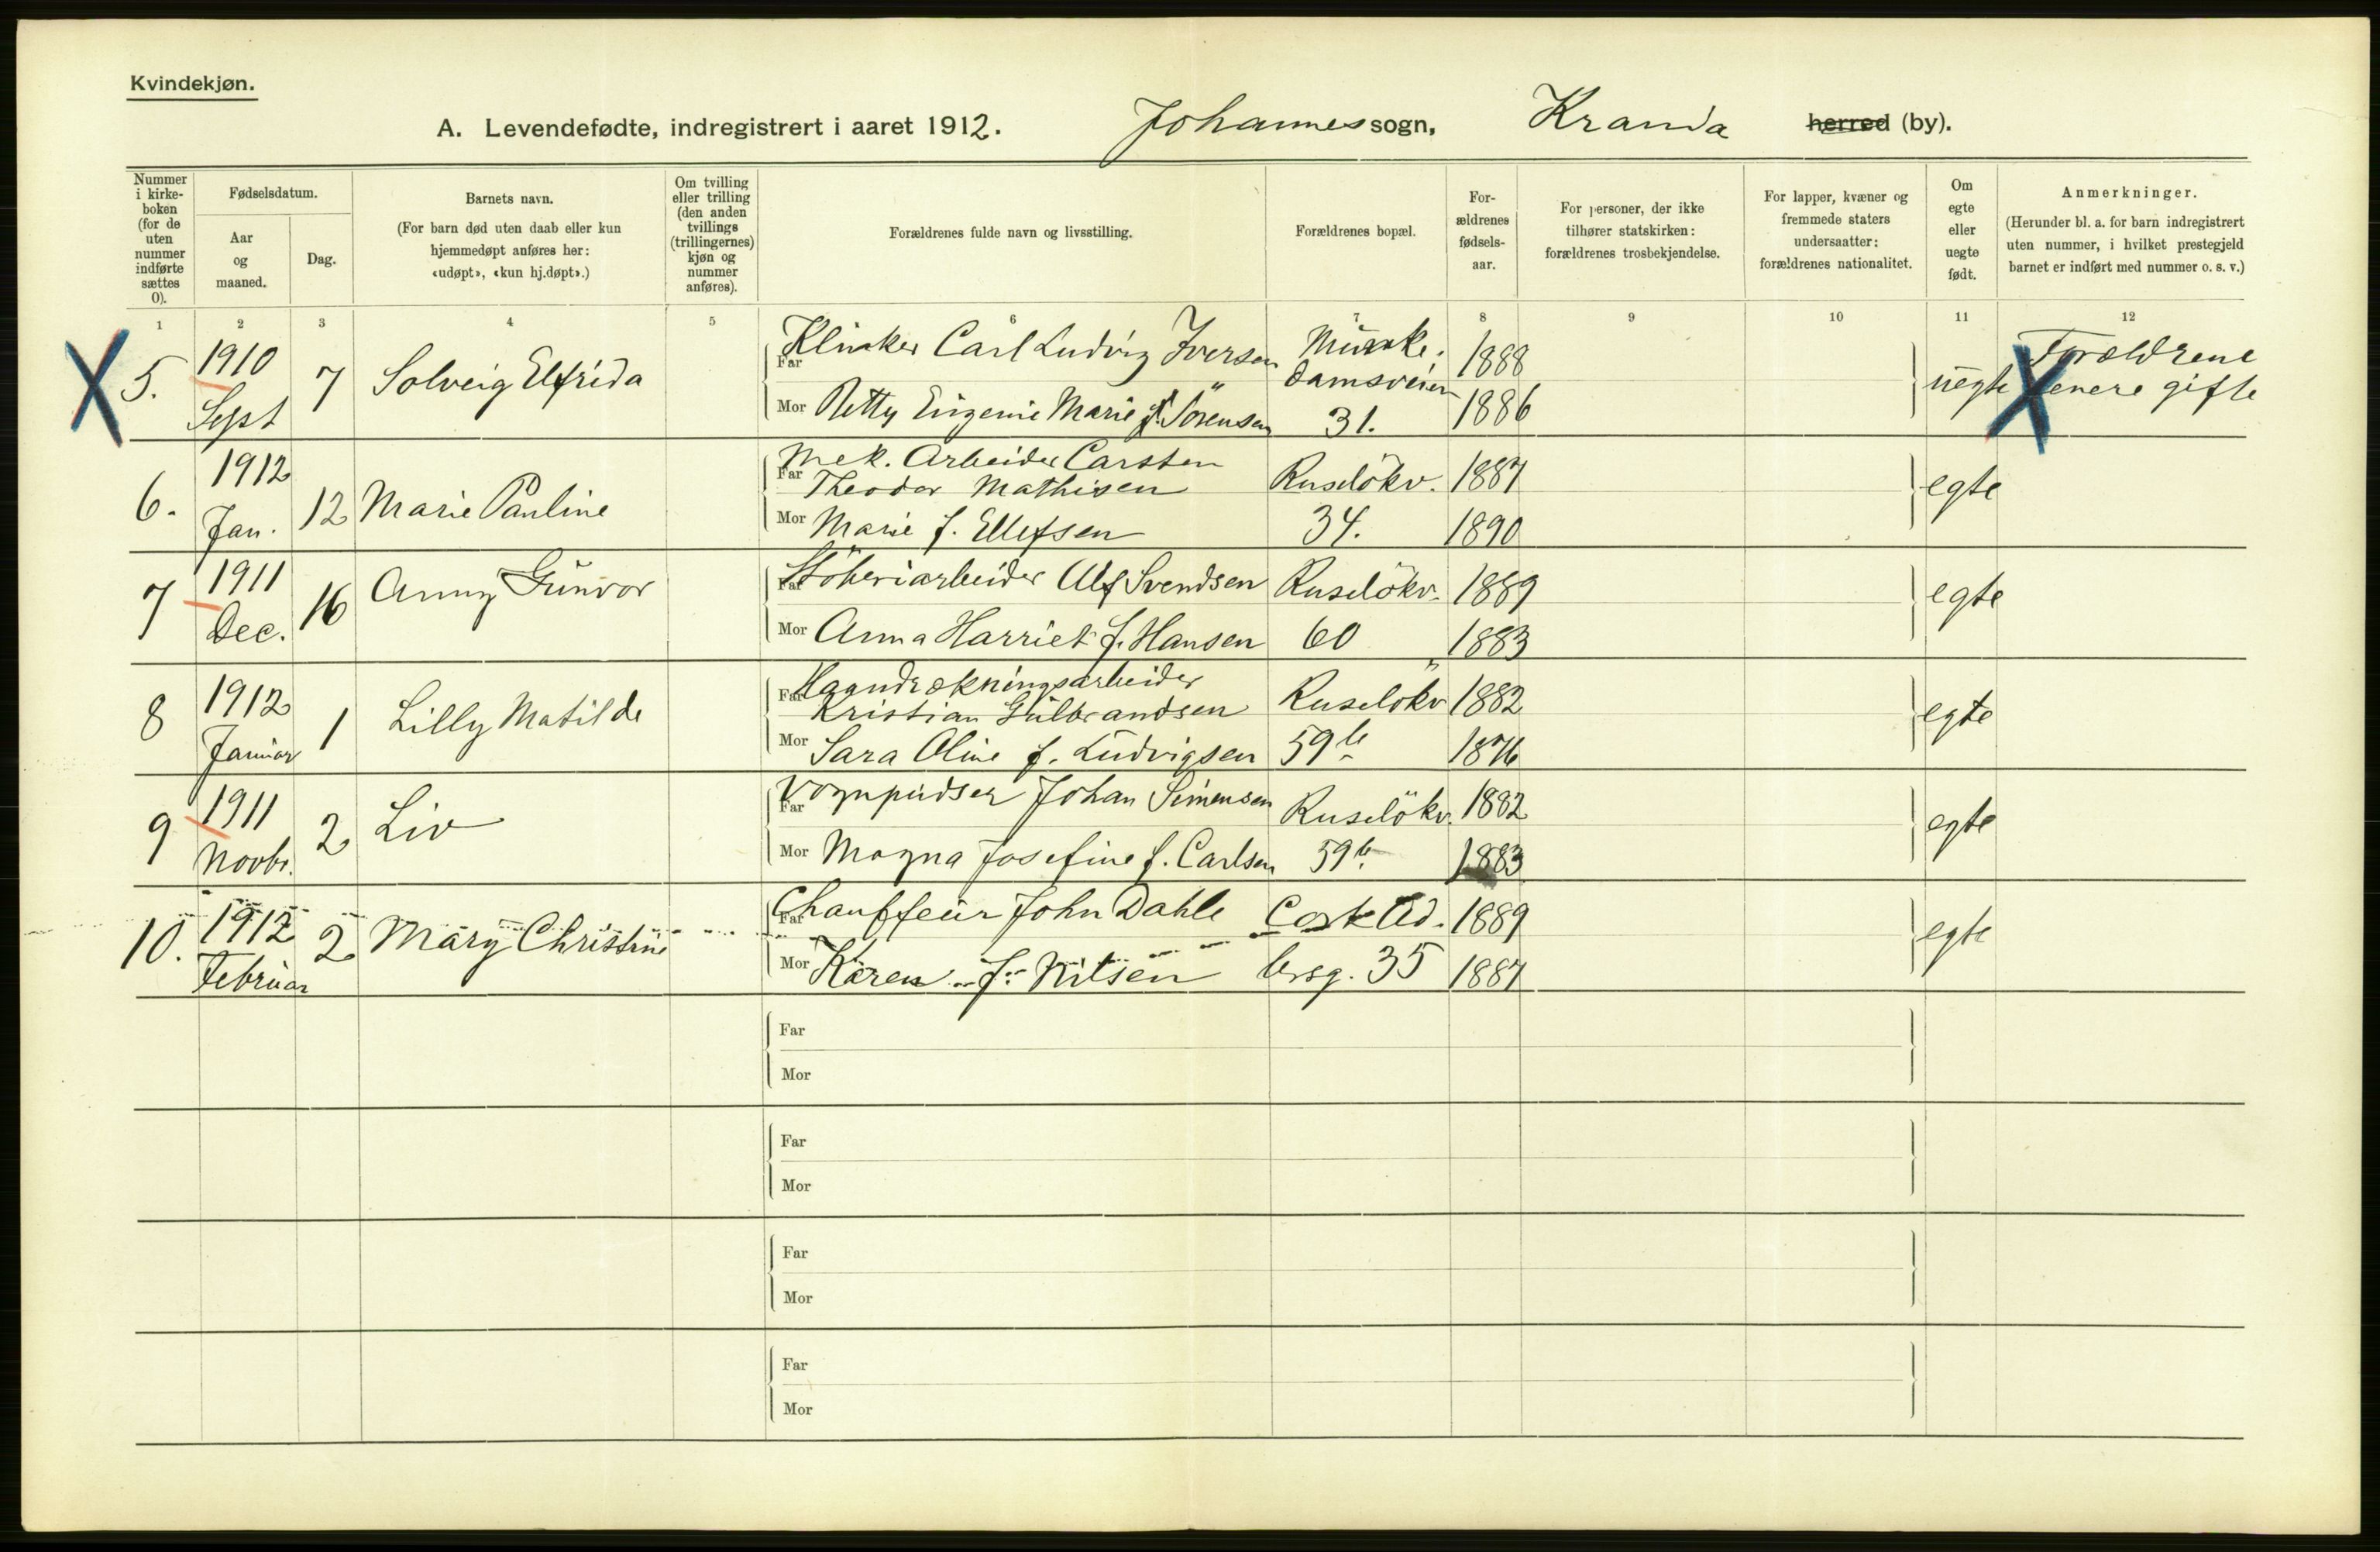 Kvindekjøn.
A. Levendefødte, indregistrert i aaret 1912. Johannes sogn, Krania herred (by).
Nummer i kirke-boken (for de uten nummer indførte sættes 0).
Fødselsdatum.
Aar og maaned.
Dag.
Barnets navn.
(For barn død uten daab eller kun hjemmedøpt anføres her: «udøpt», «kun hj.døpt».)
Om tvilling eller trilling (den anden tvillings (trillingernes) kjøn og nummer anføres).
Forældrenes fulde navn og livsstilling.
Forældrenes bopæl.
For-ældrenes fødsels-aar.
For personer, der ikke tilhører statskirken: forældrenes trosbekjendelse.
For lapper, kvæner og fremmede staters undersaatter: forældrenes nationalitet.
Om egte eller uegte født.
Anmerkninger.
(Herunder bl. a. for barn indregistrert uten nummer, i hvilket prestegjeld barnet er indført med nummer o. s. v.)
1 2 3 4 5 6 7 8 9 10 11 12
X 5. 1910 Sept 7 Solveig Elfrida
Far Klinker Carl Ludvig Iversen Munke. 1888
damsveien
Mor Netty Eugenie Marie f. Sörensen 31. 1886
uegte X Forældrene senere gifte
6. 1912 Jan. 12 Marie Pauline
Far Mek. Arbeider Carsten
Theodor Mathisen Ruselökv. 1887
Mor Marie f. Ellefsen 34. 1890
egte
7 1911 Dec. 16 Anny Gunvor
Far Stöberiarbeider Alf Svendsen Ruselökv. 1889
Mor Anna Harriet f. Hansen 60 1883
egte
8 1912 Januar 1 Lilly Matilde
Far Haandrækningsarbeider
Kristian Gulbrandsen Ruselökv 1882
Mor Sara Oline f. Ludvigsen 59 b 1876
egte
9 1911 Novbr. 2 Liv
Far Vognpudser Johan Simensen Ruselökv. 1882
Mor Magna Josefine f. Carlsen 59 b. 1883
egte
10. 1912 Februar 2 Mary Christine
Far Chauffeur John Dahle Cort Ad. 1889
Mor Karen f. Nilsen lersg. 35 1887
egte
Far
Mor
Far
Mor
Far
Mor
Far
Mor